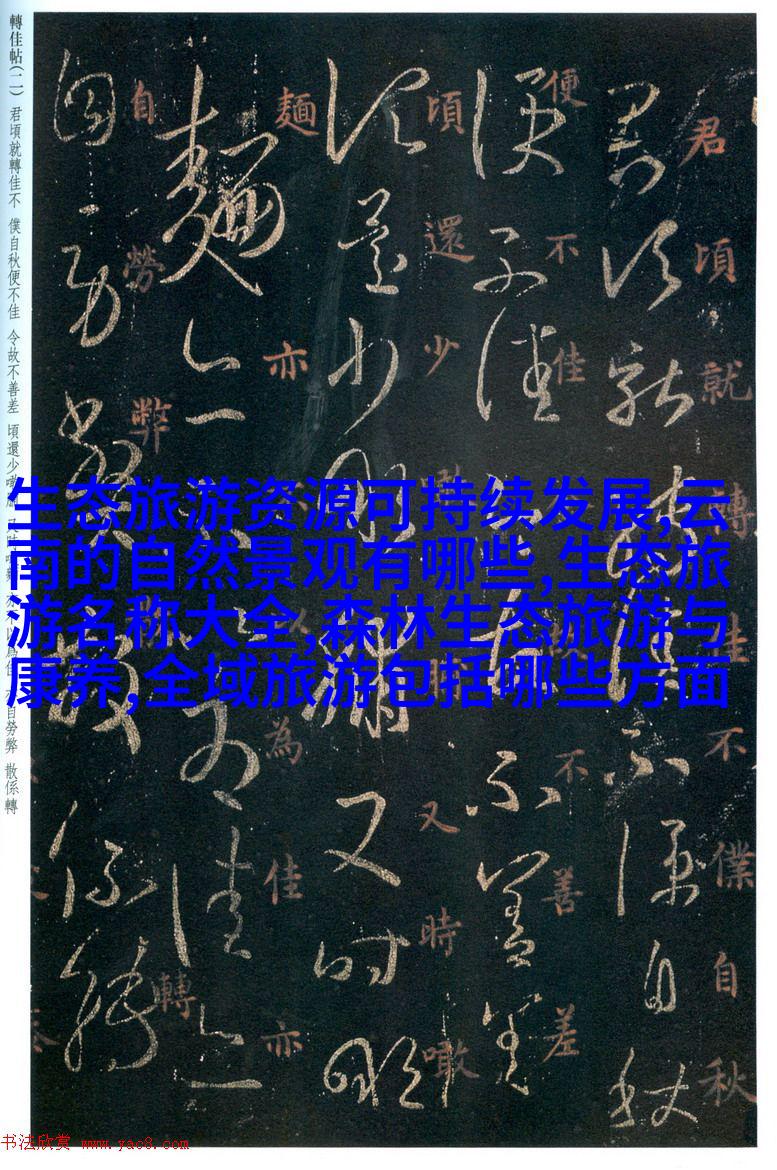 轉佳帖(二) 君頃就轉佳不 僕自秋便不佳 今故不善差 頃還少噉 又時噉 亦不以為佳 亦自勞弊 散係轉
君頃就轉佳不僕自秋
便不佳今故不善差
頃還少噉脯又時噉
麵亦不以為佳亦
自勞弊散係轉
生态旅游资源可持续发展,云
南的自然景观有哪些,生态旅
游名称大全,森林生态旅游与
康养,全域旅游包括哪些方面
书法欣赏 www.yac8.com